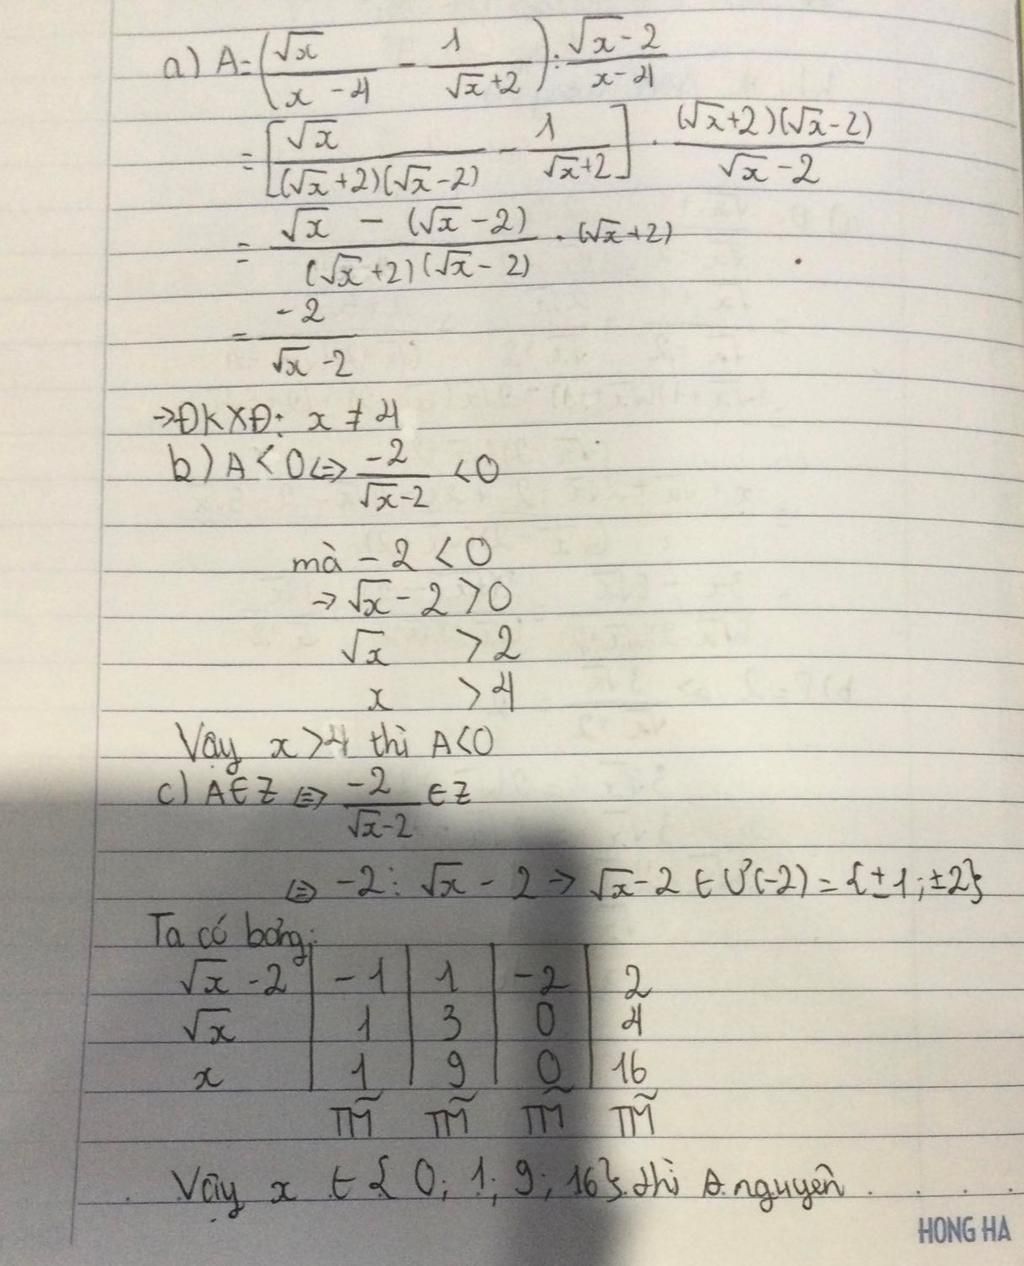 a) A = (√x / (x - 4) - 1 / (√x + 2)) : (√x - 2) / (x - 4)
= [√x / ((√x + 2)(√x - 2)) - 1 / (√x + 2)] . (√x + 2)(√x - 2) / (√x - 2)
= (√x - (√x - 2)) / ((√x + 2)(√x - 2)) . (√x + 2)
= -2 / (√x - 2)
→ ĐKXĐ: x ≠ 4
b) A < 0 ⇔ -2 / (√x - 2) < 0
mà - 2 < 0
→ √x - 2 > 0
√x > 2
x > 4
Vậy x > 4 thì A < 0
c) A ∈ Z ⇔ -2 / (√x - 2) ∈ Z
⇔ -2 : √x - 2 → √x - 2 ∈ Ư(-2) = {±1; ±2}
Ta có bảng:
√x - 2 | -1 | 1 | -2 | 2
√x | 1 | 3 | 0 | 4
x | 1 | 9 | 0 | 16
TM̃ TM̃ TM̃ TM̃
Vậy x ∈ {0; 1; 9; 16} thì A nguyên
HONG HA